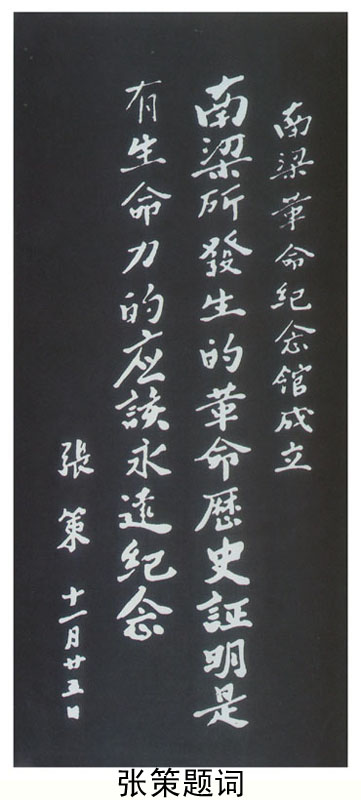 南梁革命纪念馆成立
南梁所發生的革命歷史証明是
有生命力的应該永遠纪念
張策 十一月廿五日
张策题词